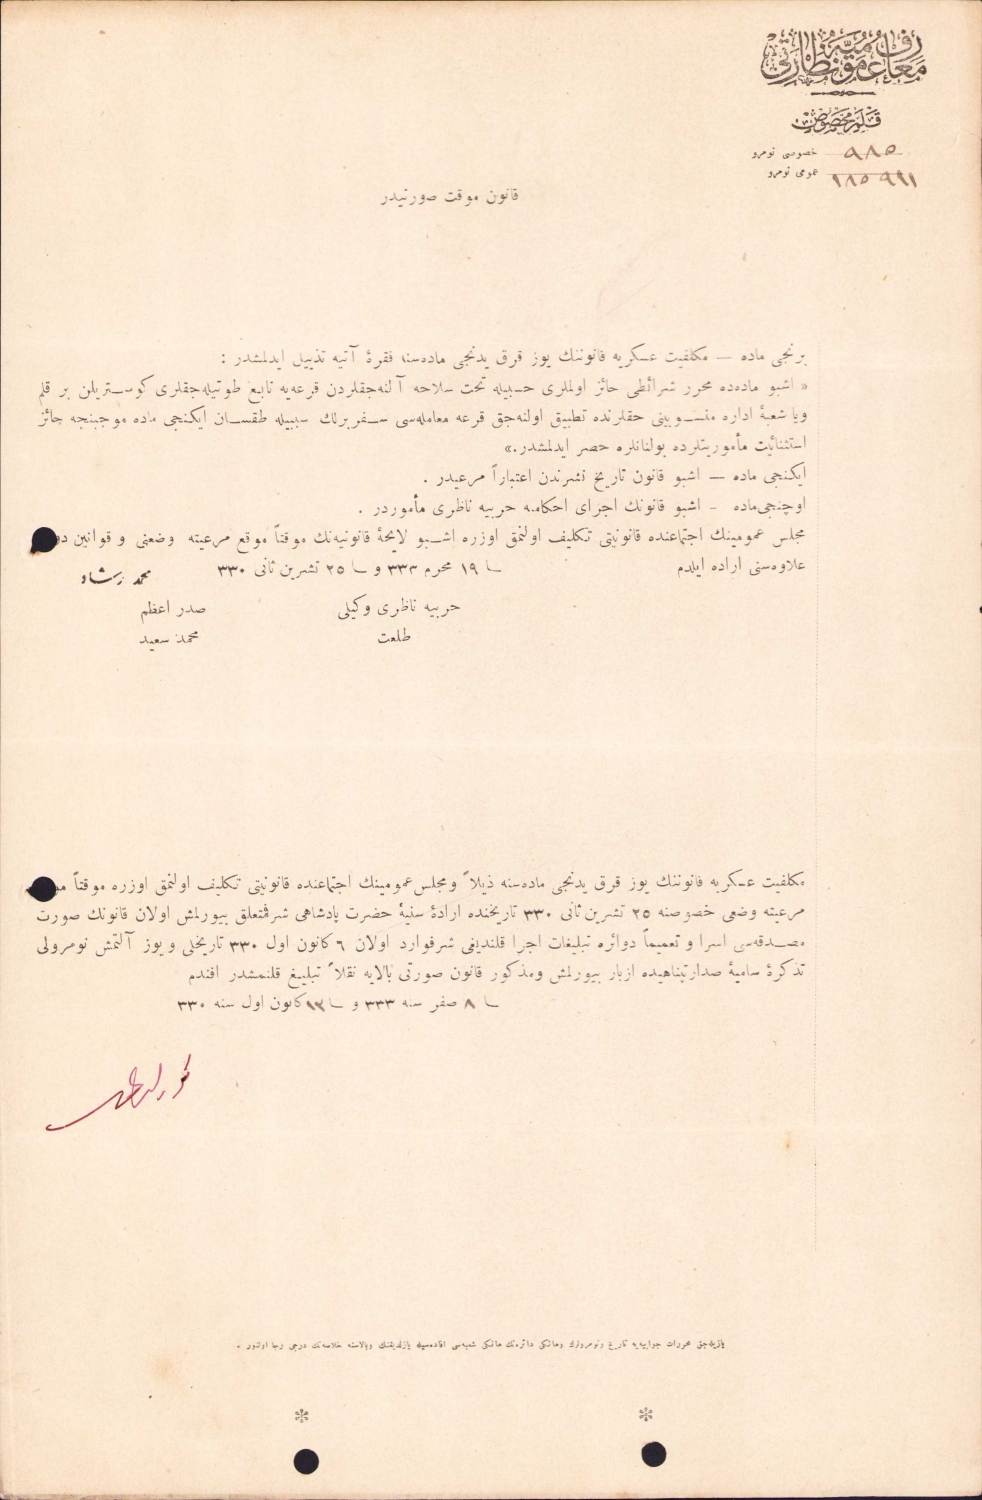 معارف عمومیه نظارتی
قلم مخصوص
خصوصی نومرو ٩٨٥
عمومی نومرو ١٨٥٩٩١
قانون موقت صورتیدر
برنجی ماده — مكلفیت عسكریه قانوننك یوز قرق یدنجی ماده‌سنه فقرۀ آتیه تذییل ایدلمشدر :
« اشبو ماده‌ده محرر شرائطی حائز اولملری حسبیله تحت سلاحه آلنه‌جقلردن قرعه‌یه تابع طوتیله‌جقلری كوستریلن بر قلم
ویا شعبۀ اداره منسوبینی حقلرنده تطبیق اولنه‌جق قرعه معامله‌سی سفربرلك سببیله طقسان ایكنجی ماده موجبنجه حائز
استثنائیت مأموریتلرده بولنانلره حصر ایدلمشدر.»
ایكنجی ماده — اشبو قانون تاریخ نشرندن اعتباراً مرعیدر .
اوچنجی ماده - اشبو قانونك اجرای احكامنه حربیه ناظری مأموردر .
مجلس عمومینك اجتماعنده قانونیتی تكلیف اولنمق اوزره اشبو لایحۀ قانونیه‌نك موقتاً موقع مرعیته وضعنی و قوانین
علاوه‌سنی اراده ایلدم
١٩ محرم ٣٣٣ و ٢٥ تشرین ثانی ٣٣٠
محمد رشاد
حربیه ناظری وكیلی
صدر اعظم
طلعت
محمد سعید
مكلفیت عسكریه قانوننك یوز قرق یدنجی ماده‌سنه ذیلاً ومجلس عمومینك اجتماعنده قانونیتی تكلیف اولنمق اوزره موقتاً
مرعیته وضعی خصوصنه ٢٥ تشرین ثانی ٣٣٠ تاریخنده ارادۀ سنیۀ حضرت پادشاهی شرفتعلق بیورلمش اولان قانونك صورت
مصدقه‌سی اسرا و تعمیماً دوائره تبلیغات اجرا قلندیغی شرفوارد اولان ٦ كانون اول ٣٣٠ تاریخلی و یوز آلتمش نومرولی
تذكرۀ سامیۀ صدارتپناهیده ازبار بیورلمش ومذكور قانون صورتی بالایه نقلاً تبلیغ قلنمشدر افندم
٨ صفر سنه ٣٣٣ و ١٣ كانون اول سنه ٣٣٠
یازیله‌جق محررات جوابیه‌یه تاریخ ونومرونك وهانكی دائره‌نك هانكی شعبه‌سی افاده‌سیله یازلدیغنك وبالاسنه خلاصه‌نك درجی رجا اولنور .